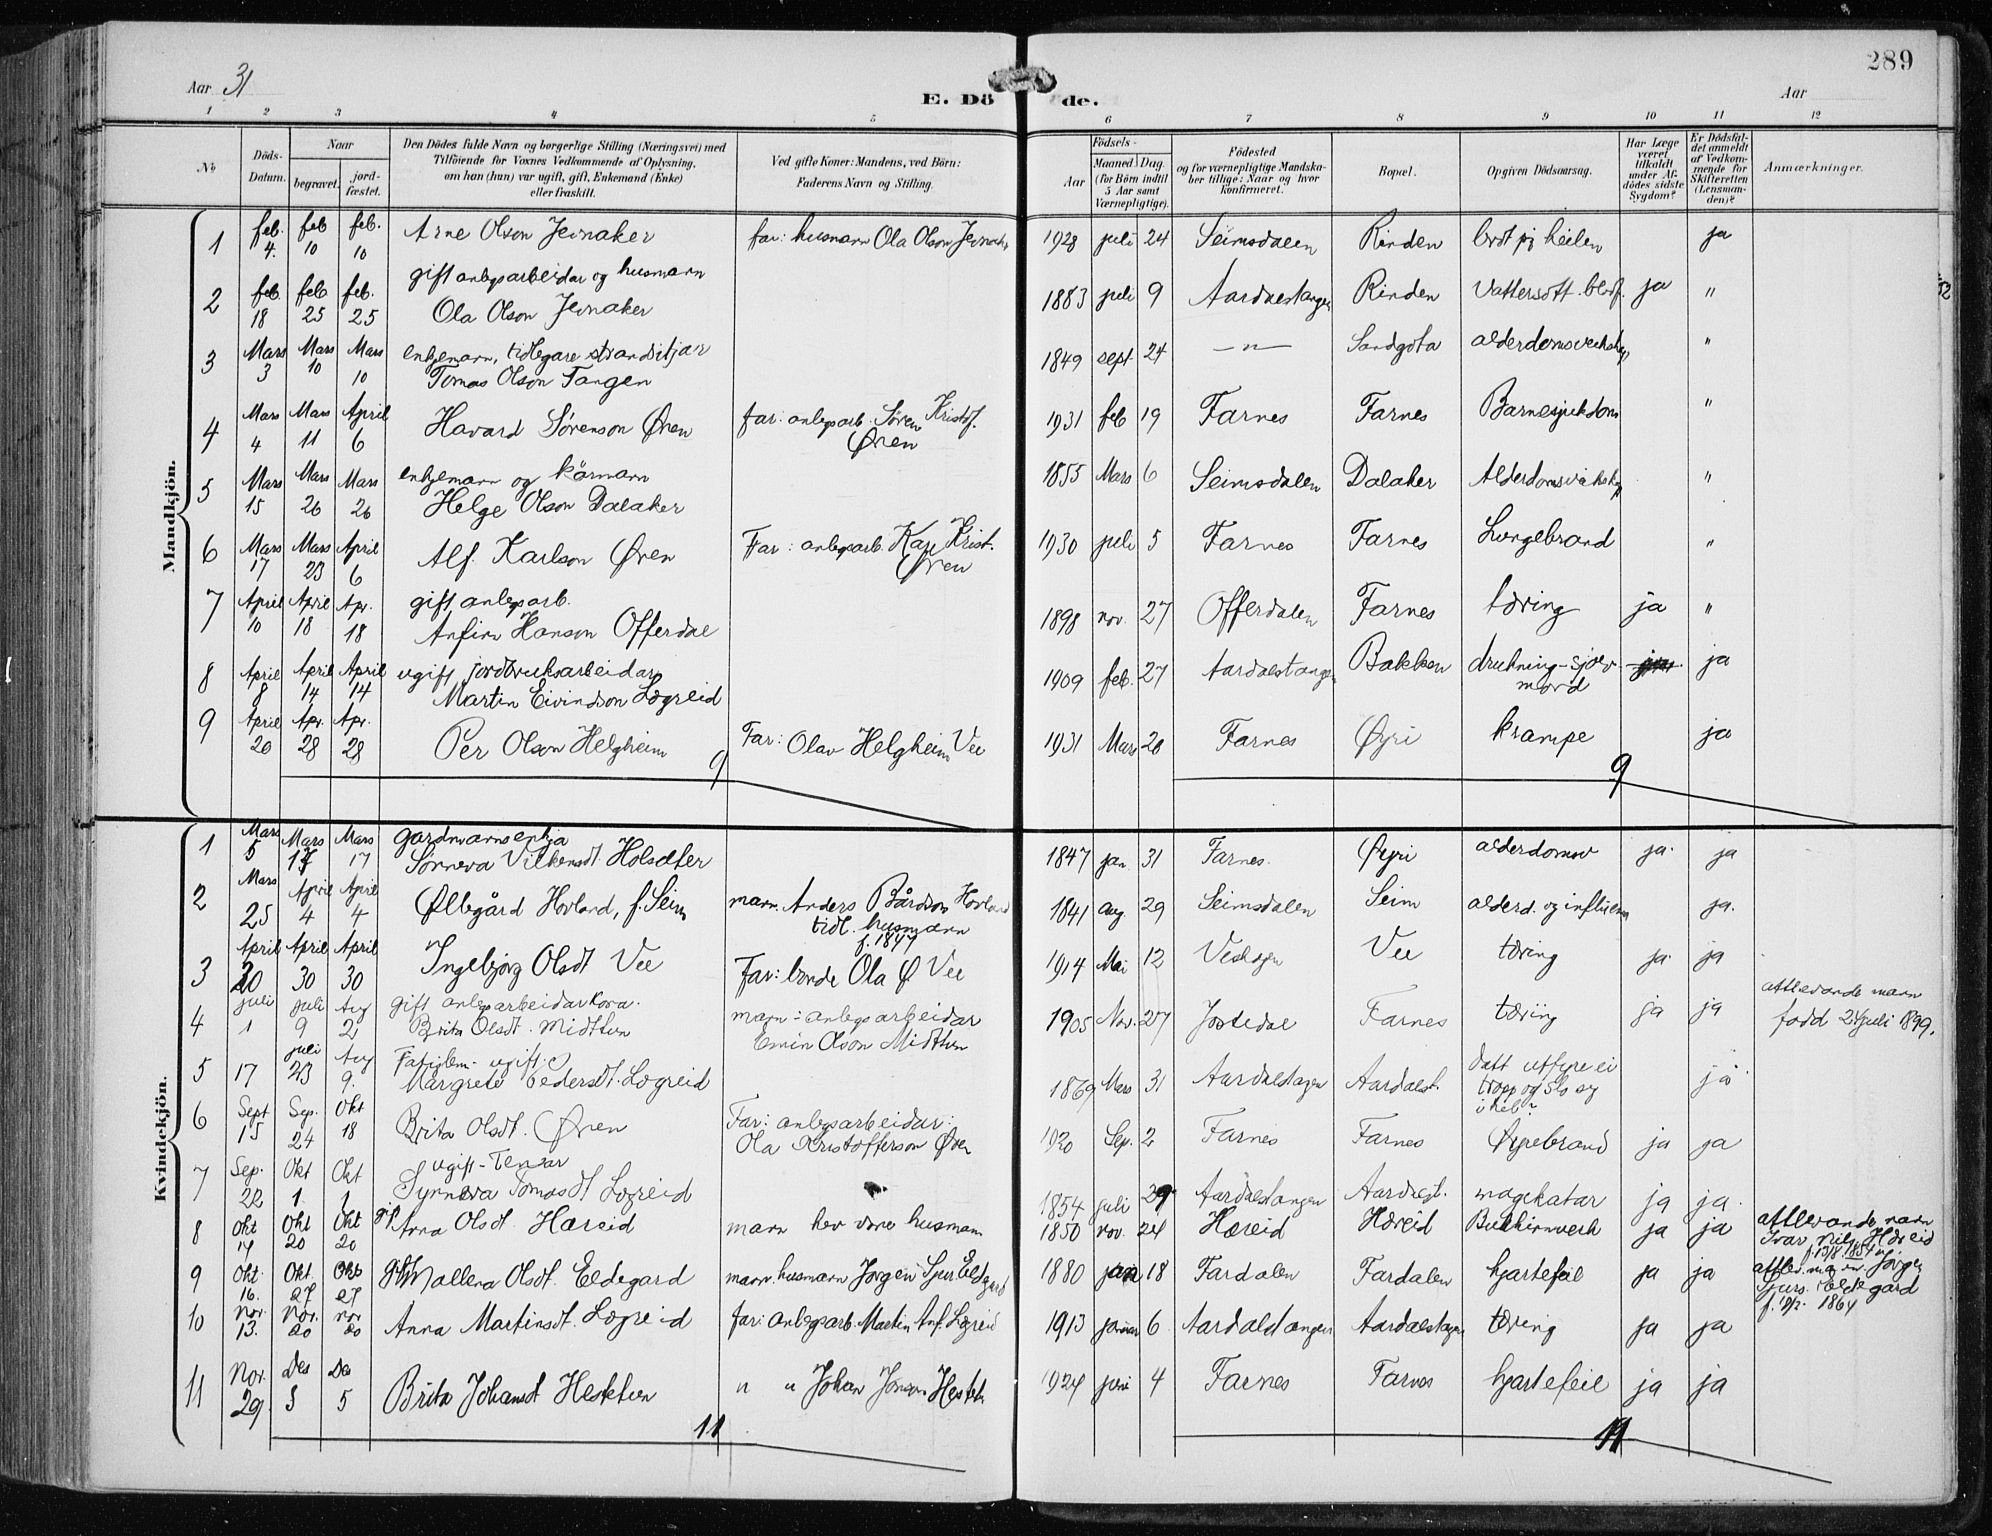 289
Aar 31
E. Döde.
Aar
1 2 3 4 5 6 7 8 9 10 11 12
No
Döds-Datum.
Naar
begravet.
jordfæstet.
Den Dödes fulde Navn og borgerlige Stilling (Næringsvei) med
Tilföiende for Voxnes Vedkommende af Oplysning,
om han (hun) var ugift, gift, Enkemand (Enke)
eller fraskilt.
Ved gifte Koner: Mandens, ved Börn:
Faderens Navn og Stilling.
Födsels-
Aar
Maaned. Dag.
(for Börn indtil
5 Aar samt
Værnepligtige).
Födested
og for værnepligtige Mandskaber tillige: Naar og hvor
konfirmeret.
Bopæl.
Opgiven Dödsaarsag.
Har Læge
været
tilkaldt
under Afdödes sidste
Sygdom?
Er Dödsfaldet anmeldt
af Vedkommende for
Skifteretten
(Lensmanden)?
Anmærkninger.
Mandkjön.
1 feb. 4. feb 10 feb. 10 Arne Olson Jevnaker far: husmann Ola Olson Jevnaker 1928 juli 24 Seimsdalen Rinden brot på heilen ja
2 feb. 18 feb 25 feb. 25 gift anlegsarbeidar og husmann
Ola Olson Jevnaker 1883 juli 9 Aardalstangen Rinden Vattersott. ja "
3 Mars 3 Mars 10 Mars 10 enkjemann, tidlegare strandsitjar
Tomas Olson Tangen 1849 sept 24 — " — Sandgota alderdomsveikskap "
4 Mars 4 Mars 11 April 6 Havard Sørenson Øren far: anlegsarb. Søren Kristof.
Øren 1931 feb 19 Farnes Farnes Barnesjukdom "
5 Mars 15 Mars 26 Mars 26 enkjemann og kårmann
Helge Olson Dalaker 1855 Mars 6 Seimsdalen Dalaker Alderdomsveikskap "
6 Mars 17 Mars 23 April 6 Alf Karlson Øren Far: anlegsarb. Karl Krist.
Øren 1930 juli 5 Farnes Farnes Lungebrand "
7 April 10 April 18 Apr. 18 gift anlegsarb.
Anfinn Hanson Offerdal 1898 nov. 27 Offerdalen Farnes tæring ja "
8 April 8 April 14 April 14 ugift jordbruksarbeidar
Martin Eivindson Lægreid 1909 feb. 27 Aardalstangen Bakken drukning - sjølvmord ja
9 April 20 Apr. 28 Apr. 28 Per Olson Helgheim Far: Olav Helgheim Vee 1931 Mars 20 Farnes Øyri krampe ja
9 9
Kvindekjön.
1 Mars 5 Mars 17 Mars 17 gardmannsenkja
Sønneva Vilhemsdt. Holsæter 1847 jan 31 Farnes. Øyri alderdomsv ja. ja
2 Mars 25 April 4 April 4 Øllegård Hovland, f. Seim mann. Anders Bårdson Hovland
tidl. husmann
f. 1847 1841 aug. 29 Seimsdalen Seim alderd. og influensa ja.
3 April 20 April 30 April 30 Ingebjørg Olsdt Vee Far: bonde Ola Ø Vee 1914 Mai 12 Vee tæring ja. ja
4 juli 1 juli 9 Aug 2 gift anlegsarbeidarkona.
Brita Olsdt. Midttun mann: anlegsarbeidar
Emin Olson Midttun 1905 Nov. 27 Jostedal Farnes tæring ja ja attlevande mann
fødd 24 juli 1899.
5 17 juli 23 Aug 9. ugift
Margrete Pedersdt. Lægreid 1869 Mars 31 Aardalstangen Aardalst. Datt utfyre ei
tropp og slo seg
ihel? ja
6 Sept 15 Sep. 24 Okt 18 Brita Olsdt. Øren Far: anlegsarbeidar:
Ola Kristofferson Øren 1920 Sep. 2 Farnes Farnes Øyrebrand ja ja
7 Sep. 22 Okt 1. Okt 1 ugift - Tenar
Synneva Tomasdt Lægreid 1854 juli 29 Aardalstangen Aardalst. magekatar ja ja.
8 Okt 14 Okt 20 Okt 20 gift Anna Olsdt. Hæreid mann hev vore husmann 1850 nov. 24 Hæreid Hæreid ja ja attlevande mann
Ivar Nils. Hæreid
9 Okt. 16. Okt. 27 Okt 27 gift Mallena Olsdt. Eldegard mann. husmann Jørgen Sjurs. Eldegard 1880 jan 18 Fardalen Fardalen hjartefeil ja ja attlev. mann. Jørgen
Sjurs. Eldegard
f. 1864
10 Nov. 13. Nov. 20 nov 20 Anna Martinsdt. Lægreid far: anlegsarb. Martin Anf. Lægreid 1913 januar 6 Aardalstangen Aardalstangen tæring ja ja
11 Nov. 29 Des 5 Des 5 Brita Johansdt Hestetun " " Johan Jonson Hestetun 1924 juni 4 Farnes Farnes hjartefeil ja ja
11 11